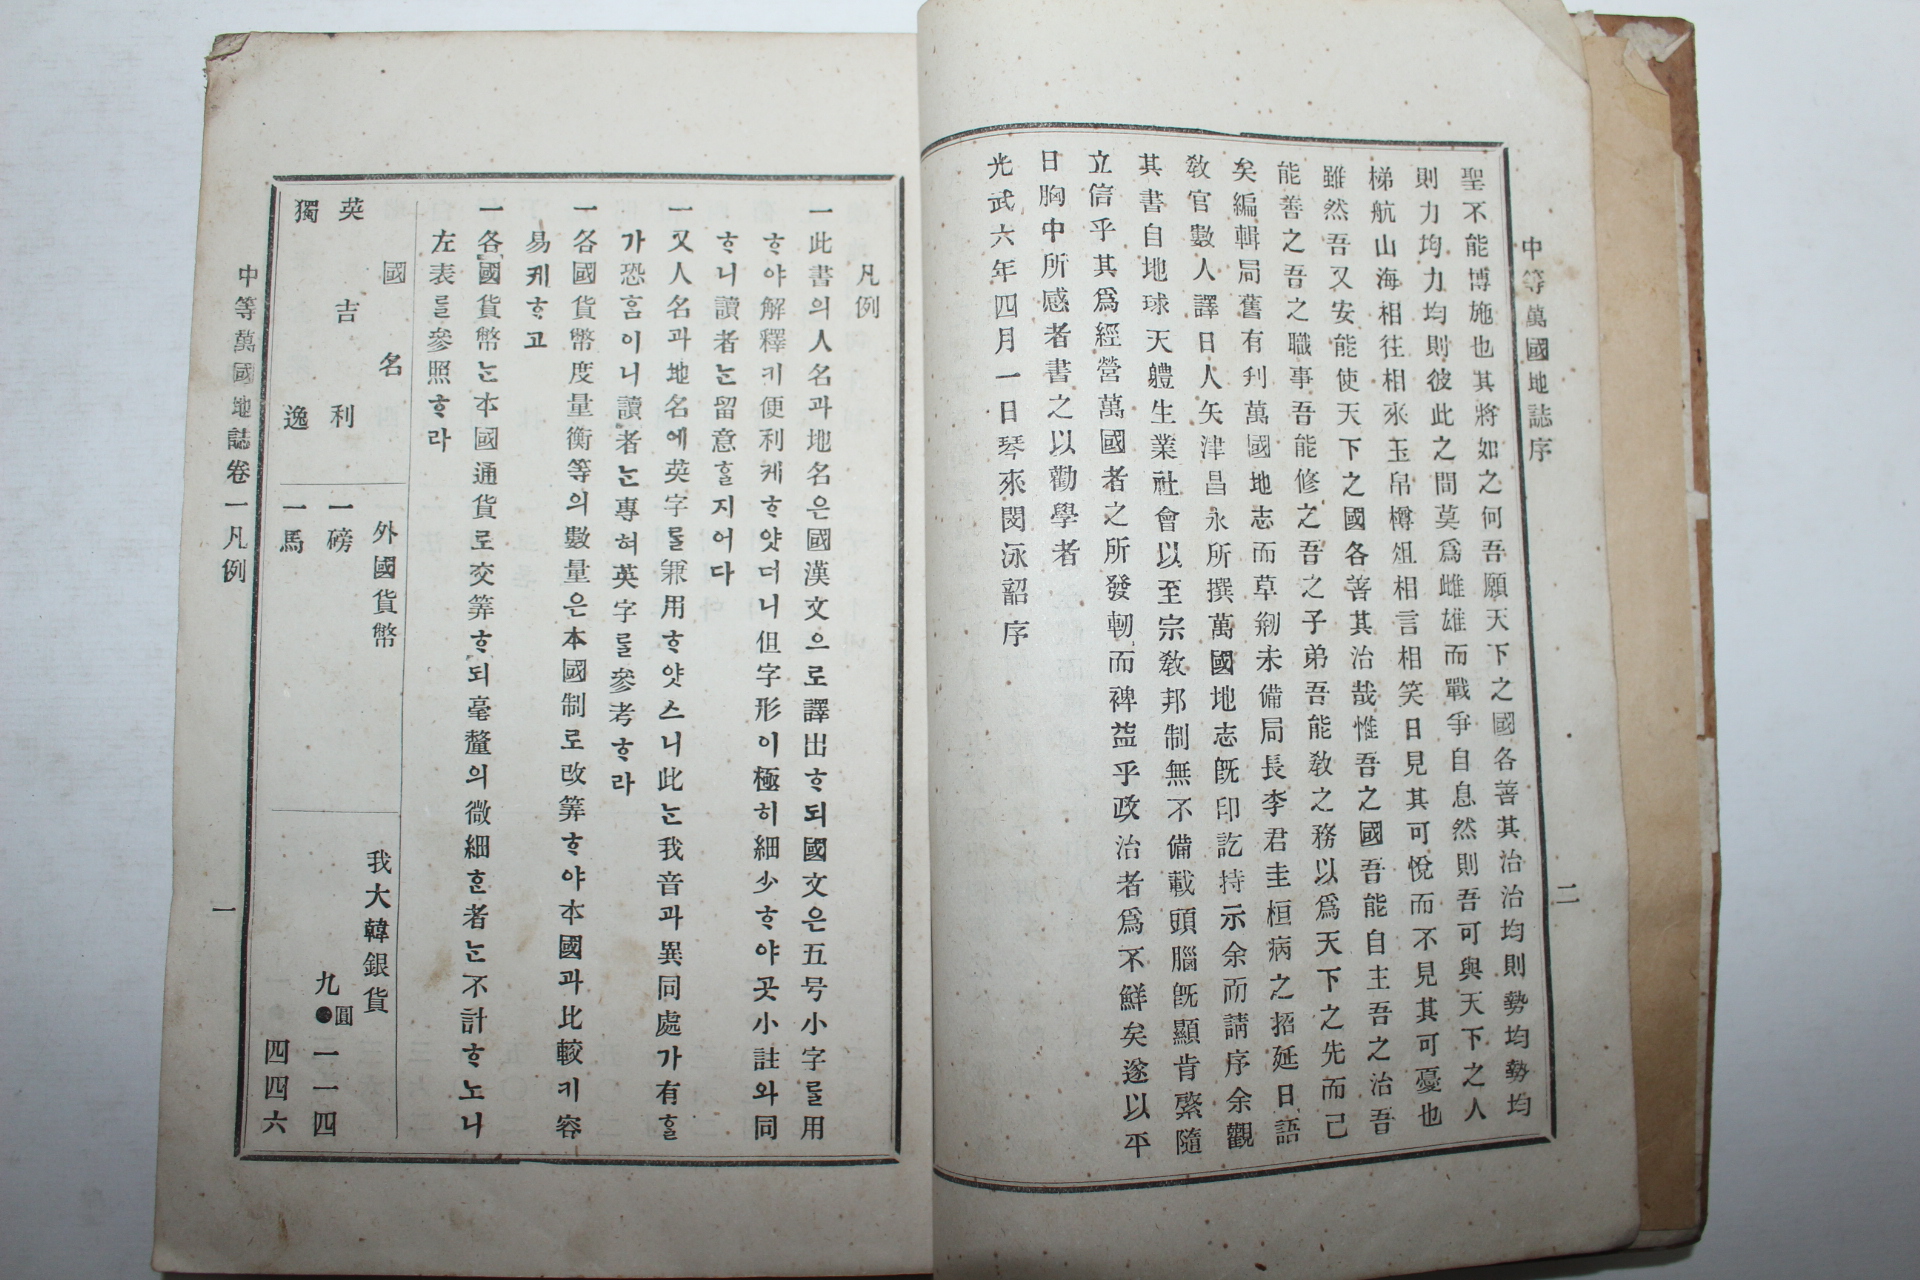 中等萬國地誌序
二
聖不能博施也其將如之何吾願天下之國各善其治治均則勢均勢均
則力均力均則彼此之間莫爲雌雄而戰爭自息然則吾可與天下之人
梯航山海相往相來玉帛樽俎相言相笑日見其可悅而不見其可憂也
雖然吾又安能使天下之國各善其治哉惟吾之國吾能自主吾之治吾
能善之吾之職事吾能修之吾之子弟吾能敎之務以爲天下之先而已
矣編輯局舊有刊萬國地志而草剏未備局長李君圭桓病之招延日語
敎官數人譯日人矢津昌永所撰萬國地志旣印訖持示余而請序余觀
其書自地球天軆生業社會以至宗敎邦制無不備載頭腦旣顯肯綮隨
立信乎其爲經營萬國者之所發軔而裨益乎政治者爲不鮮矣遂以平
日胸中所感者書之以勸學者
光武六年四月一日琴來閔泳韶序
凡例
一此書의人名과地名은國漢文으로譯出ᄒᆞ되國文은五号小字를用
ᄒᆞ야解釋키便利케ᄒᆞ얏더니但字形이極히細少ᄒᆞ야곳小註와同
ᄒᆞ니讀者ᄂᆞᆫ留意ᄒᆞᆯ지어다
一又人名과地名에英字ᄅᆞᆯ兼用ᄒᆞ얏스니此ᄂᆞᆫ我音과異同處가有ᄒᆞᆯ
가恐ᄒᆞᆷ이니讀者ᄂᆞᆫ專혀英字ᄅᆞᆯ參考ᄒᆞ라
一各國貨幣度量衡等의數量은本國制로改筭ᄒᆞ야本國과比較키容
易케ᄒᆞ고
一各國貨幣ᄂᆞᆫ本國通貨로交筭ᄒᆞ되毫釐의微細ᄒᆞᆫ者ᄂᆞᆫ不計ᄒᆞ노니
左表ᄅᆞᆯ參照ᄒᆞ라
國名 外國貨幣 我大韓銀貨
英吉利 一磅 九圓●一一四
獨逸 一馬 四四六
中等萬國地誌卷一凡例
一